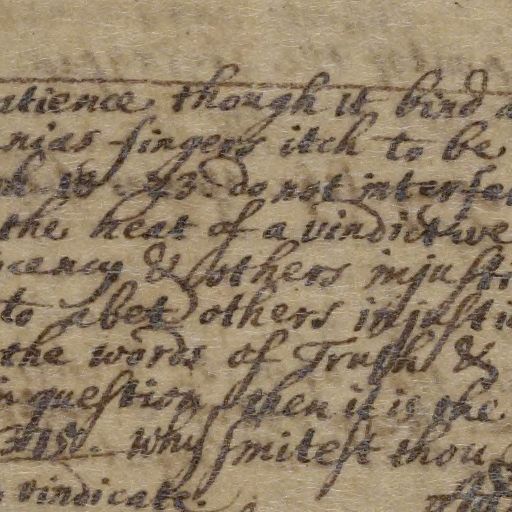 atience though it bind a
nias fingers itch to be
18. 23. do not interfe
the heat of a vindictive
cency & others injust
to abet others injusti
the words of Truth &
question then it is the
why smitest thou
vindicate.